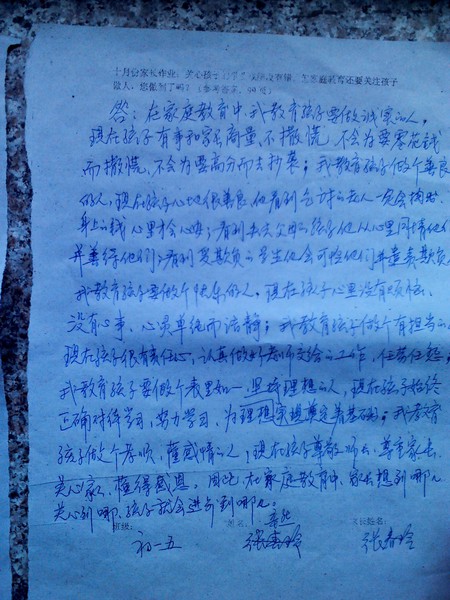 十月份家长作业:关心孩子 家庭教育还要关注孩子
做人,您做到了吗?(参考答案,99页)
答:在家庭教育中我教育孩子要做诚实的人,
现在孩子有事和家长商量,不撒慌,不会为要零花钱
而撒慌,不会为要高分而去抄袭;我教育孩子做个善良
的人,现在孩子心地很善良,他看到乞讨的老人一定会掏出
身上的钱心里才会心安;看到失去父母的孩子他从心里同情他们
并善待他们;看到受欺负的学生他会可怜他们并谴责欺负人
我教育孩子要做个快乐的人,现在孩子心里没有烦恼、
没有心事、心灵单纯而洁静;我教育孩子做个有担当的
现在孩子很有责任心,认真做好老师交给的工作,任劳任怨;
我教育孩子要做个表里如一,坚持理想的人,现在孩子始终
正确对待学习,努力学习,为理想 奠定着基础;我教育
孩子做个孝顺,懂感情的人,现在孩子尊敬师长、尊重家长、
关心家人,懂得感恩。因此,在家庭教育中,家长想到哪儿
关心到哪,孩子就会进步到哪儿。
班级: 姓名: 家长姓名:
初一五 张 张春玲